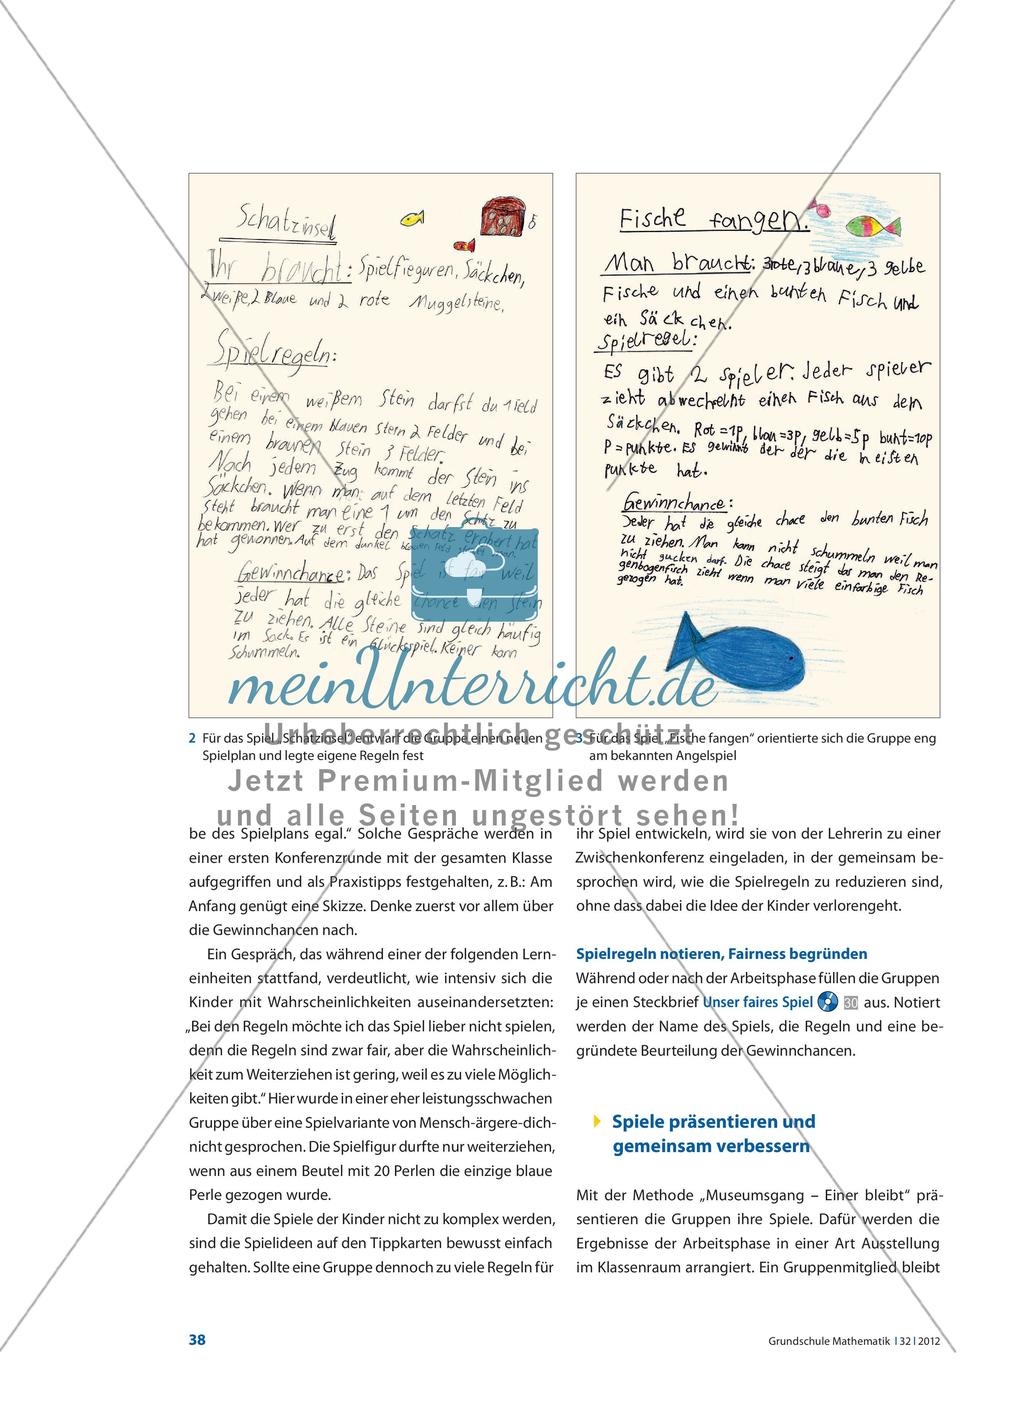 Schatzinsel
Ihr braucht: Spielfieguren, Säckchen,
2 weiße, 2 Blaue und 2 rote Muggelsteine.
Spielregeln:
Bei einem weißem Stein darfst du 1 Feld
gehen bei einem blauen Stein 2 Felder und bei
einem braunen Stein 3 Felder.
Nach jedem Zug kommt der Stein ins
Säckchen. Wenn man auf dem letzten Feld
steht braucht man eine 1 um den Schtz zu
bekommen. Wer zu erst den Schatz erobert hat
hat gewonnen. Auf dem dunkel
Gewinnchance: Das Spiel ist fär weil
jeder hat die gleiche chance den Stein
zu ziehen. Alle Steine sind gleich häufig
im Sack. Es ist ein Glücksspiel. Keiner kann
Schummeln.
Fische fangen.
Man braucht: 3 rote, 3 blaue, 3 gelbe
Fische und einen bunten Fisch und
ein Säckchen.
Spielregel:
ES gibt 2 spieler. Jeder spieler
zieht abwechselnt einen Fisch aus dem
Säckchen. Rot =1p, blau =3p, gelb =5p bunt=10p
P = punkte. ES gewinnt der der die meisten
punkte hat.
Gewinnchance:
Jeder hat die gleiche chace den bunten Fisch
zu ziehen. Man kann nicht schummeln weil man
nicht gucken darf. Die chace steigt das man den Re-
genbogenfisch zieht wenn man viele einfarbige Fisch
gezogen hat.
meinUnterricht.de
Urheberrechtlich geschützt
Jetzt Premium-Mitglied werden
und alle Seiten ungestört sehen!
2 Für das Spiel „Schatzinsel“ entwarf die Gruppe einen neuen
Spielplan und legte eigene Regeln fest
3 Für das Spiel „Fische fangen“ orientierte sich die Gruppe eng
am bekannten Angelspiel
be des Spielplans egal.“ Solche Gespräche werden in
einer ersten Konferenzrunde mit der gesamten Klasse
aufgegriffen und als Praxistipps festgehalten, z. B.: Am
Anfang genügt eine Skizze. Denke zuerst vor allem über
die Gewinnchancen nach.
Ein Gespräch, das während einer der folgenden Lern-
einheiten stattfand, verdeutlicht, wie intensiv sich die
Kinder mit Wahrscheinlichkeiten auseinandersetzten:
„Bei den Regeln möchte ich das Spiel lieber nicht spielen,
denn die Regeln sind zwar fair, aber die Wahrscheinlich-
keit zum Weiterziehen ist gering, weil es zu viele Möglich-
keiten gibt.“ Hier wurde in einer eher leistungsschwachen
Gruppe über eine Spielvariante von Mensch-ärgere-dich-
nicht gesprochen. Die Spielfigur durfte nur weiterziehen,
wenn aus einem Beutel mit 20 Perlen die einzige blaue
Perle gezogen wurde.
Damit die Spiele der Kinder nicht zu komplex werden,
sind die Spielideen auf den Tippkarten bewusst einfach
gehalten. Sollte eine Gruppe dennoch zu viele Regeln für
ihr Spiel entwickeln, wird sie von der Lehrerin zu einer
Zwischenkonferenz eingeladen, in der gemeinsam be-
sprochen wird, wie die Spielregeln zu reduzieren sind,
ohne dass dabei die Idee der Kinder verlorengeht.
Spielregeln notieren, Fairness begründen
Während oder nach der Arbeitsphase füllen die Gruppen
je einen Steckbrief Unser faires Spiel 30 aus. Notiert
werden der Name des Spiels, die Regeln und eine be-
gründete Beurteilung der Gewinnchancen.
Spiele präsentieren und
gemeinsam verbessern
Mit der Methode „Museumsgang – Einer bleibt“ prä-
sentieren die Gruppen ihre Spiele. Dafür werden die
Ergebnisse der Arbeitsphase in einer Art Ausstellung
im Klassenraum arrangiert. Ein Gruppenmitglied bleibt
38
Grundschule Mathematik | 32 | 2012